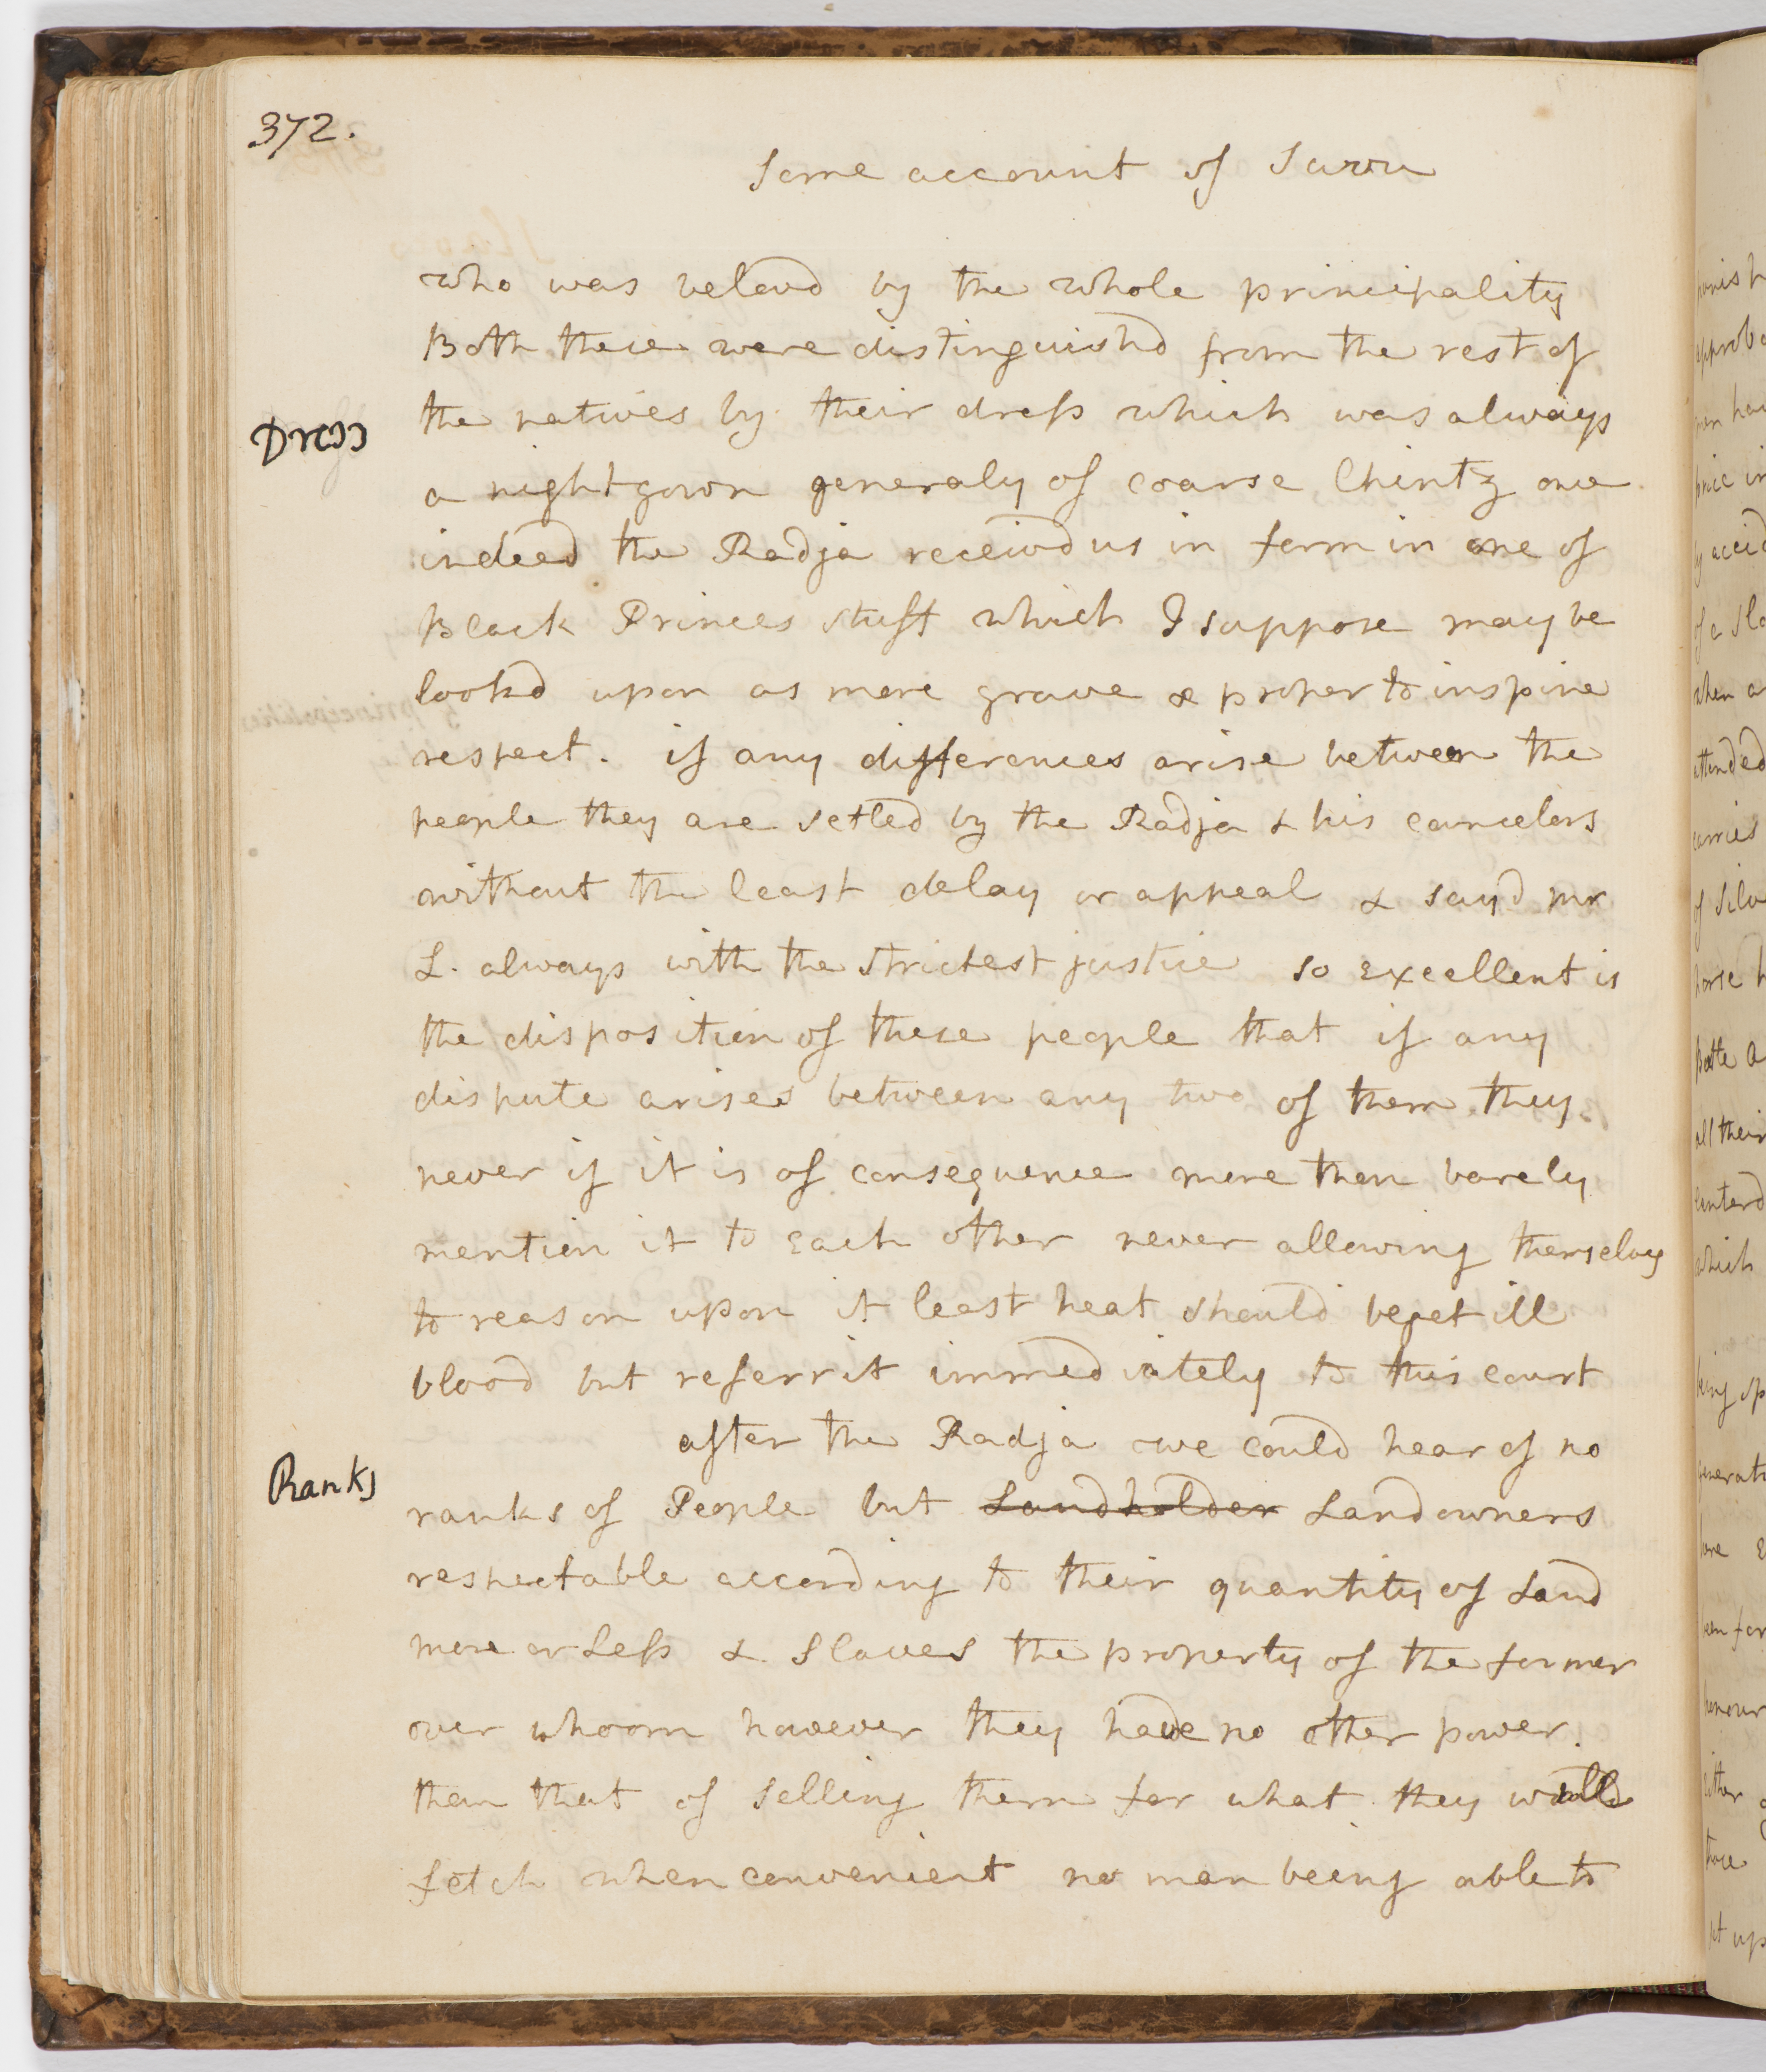 372.
Some account of Savu
who was belovd by the whole principality
Both these were distinguishd from the rest of
Dress
the natives by their dress which was always
a nightgown generaly of coarse Chintz once
indeed the Radja receivd us in form in one of
Black Princes stuff which I suppose may be
lookd upon as more grave & proper to inspire
respect. if any differences arise between the
people they are setled by the Radja & his councelors
without the least delay or appeal & sayd Mr
L. always with the strictest justice so excellent is
the disposition of these people that if any
dispute arises between any two of them they
never if it is of consequence more than barely
mention it to each other never allowing themselves
to reason upon it least heat should beget ill
blood but referr it immediately to this court
after the Radja we could hear of no
Ranks
ranks of People but Landholder Landowners
respectable according to their quantity of Land
more or Less & Slaves the property of the former
over whoom however they have no other power
than that of selling them for what they will
fetch when convenient no man being able to
punish
approba
man hav
price in
by accid
of a sla
when a
attended
carries
of silv
horse h
Bettle a
all their
centerd
which
being sp
generati
here e
been for
honour
either
those
it up